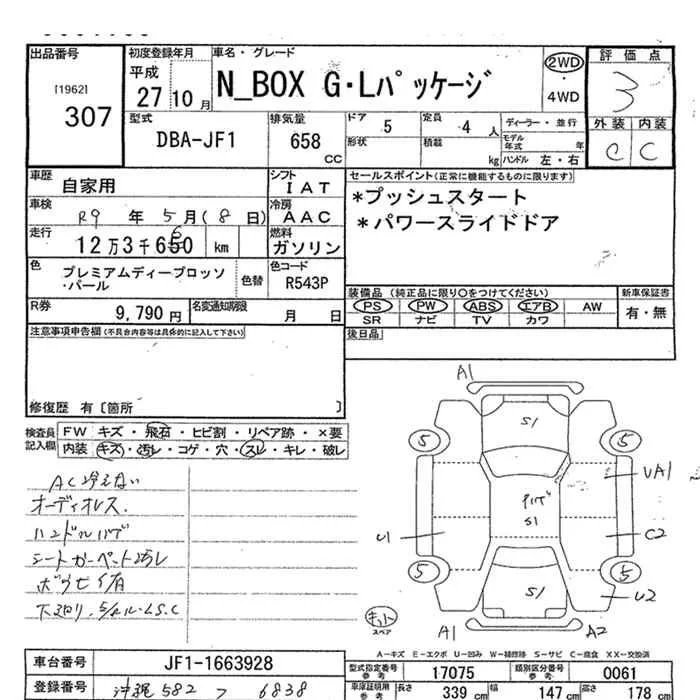 出品番号
[1962]
307
初度登録年月
平成
27 10 月
車名・グレード
N_BOX G・Lパッケージ
2WD
4WD
評価点
3
外装 内装
C C
型式
DBA-JF1
排気量
658
CC
ドア 5
定員 4 人
形状
積載 kg
ディーラー・並行
モデル年式 年
ハンドル 左・右
車歴
自家用
シフト
IAT
車検
R9 年 5 月 (8 日)
冷房
AAC
走行
12 万 3 千 650 km
6
燃料
ガソリン
色
プレミアムディープロッソ・パール
色替
色コード
R543P
R券
9,790 円
名変通知期限
月 日
セールスポイント(正常に機能するものに限ります)
*プッシュスタート
*パワースライドドア
装備品 (純正品に限り○をつけてください)
新車保証書
PS PW ABS エアB AW
有・無
SR ナビ TV カワ
後日品
注意事項申告欄(不具合内容等は具体的に記入して下さい)
修復歴 有〔箇所 〕
検査員記入欄
FW キズ・飛石・ヒビ割・リペア跡・×要
内装 キズ・汚レ・コゲ・穴・スレ・キレ・破レ
AC冷えない
オーディオレス.
シートカーペット汚レ
A1
S1
5
5
UA1
S1
U1
C2
5
5
S1
U2
スペア
A1
A2
A-キズ E-エクボ U-凹み W-補修跡 S-サビ C-腐食 XX-交換済
車台番号
JF1-1663928
登録番号
沖縄 582 ク 6838
型式指定番号
参考
17075
類別区分番号
参考
0061
車庫証明用
参考
長さ 339 cm
幅 147 cm
高さ 178 cm